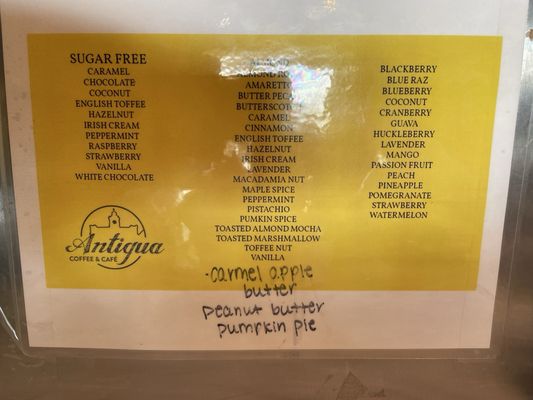 SUGAR FREE
CARAMEL
CHOCOLATE
COCONUT
ENGLISH TOFFEE
HAZELNUT
IRISH CREAM
PEPPERMINT
RASPBERRY
STRAWBERRY
VANILLA
WHITE CHOCOLATE
Antigua
COFFEE & CAFÉ
ALMOND
ALMOND ROCA
AMARETTO
BUTTER PECAN
BUTTERSCOTCH
CARAMEL
CINNAMON
ENGLISH TOFFEE
HAZELNUT
IRISH CREAM
LAVENDER
MACADAMIA NUT
MAPLE SPICE
PEPPERMINT
PISTACHIO
PUMKIN SPICE
TOASTED ALMOND MOCHA
TOASTED MARSHMALLOW
TOFFEE NUT
VANILLA
-carmel apple
butter
peanut butter
pumpkin pie
BLACKBERRY
BLUE RAZ
BLUEBERRY
COCONUT
CRANBERRY
GUAVA
HUCKLEBERRY
LAVENDER
MANGO
PASSION FRUIT
PEACH
PINEAPPLE
POMEGRANATE
STRAWBERRY
WATERMELON